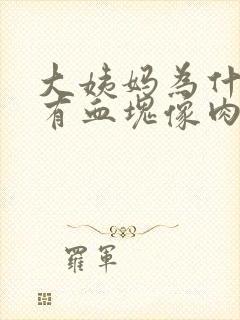 大姨妈為什
有血塊像肉
羅軍